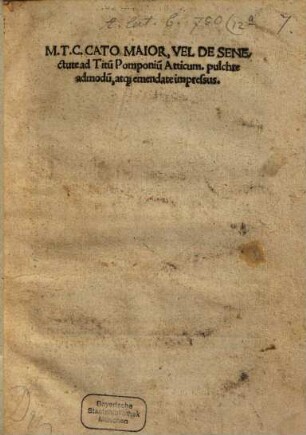 A. lat. b. 760 (12a 7.
M.T.C. CATO MAIOR, VEL DE SENE/
ctute ad Titū Pomponiū Atticum. pulchre
admodū, atq; emendate impreſsus.
Bayerische
Staatsbibliothek
München